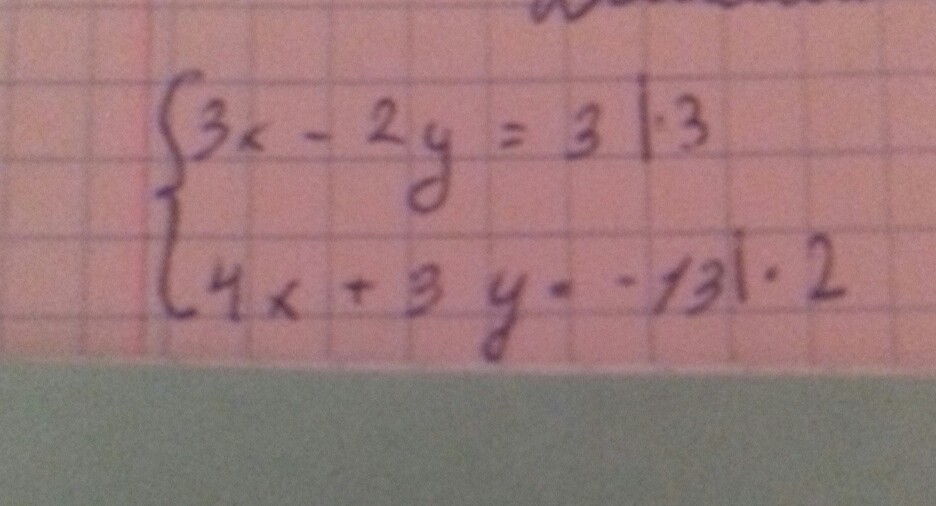 3x - 2y = 3 |·3
4x + 3y = -13 |·2